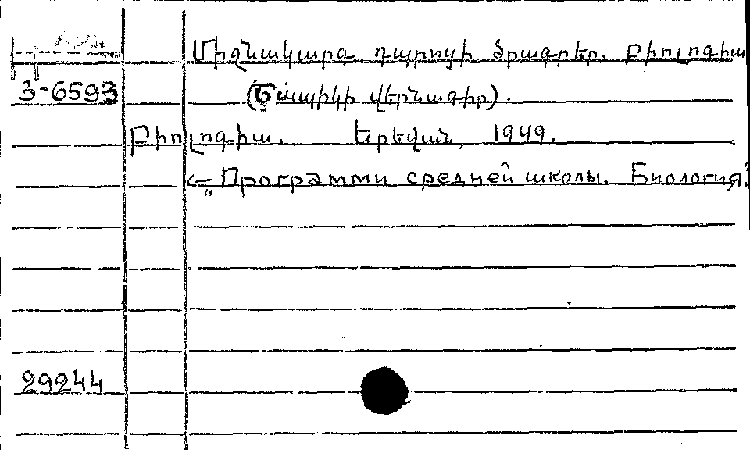 Միջնակարգ դպրոցի ծրագրեր. Բիոլոգիա
3-6593
(Շապիկի վերնագիր).
Բիոլոգիա. Երևան, 1949.
Программи средней школы. Биология.
29244